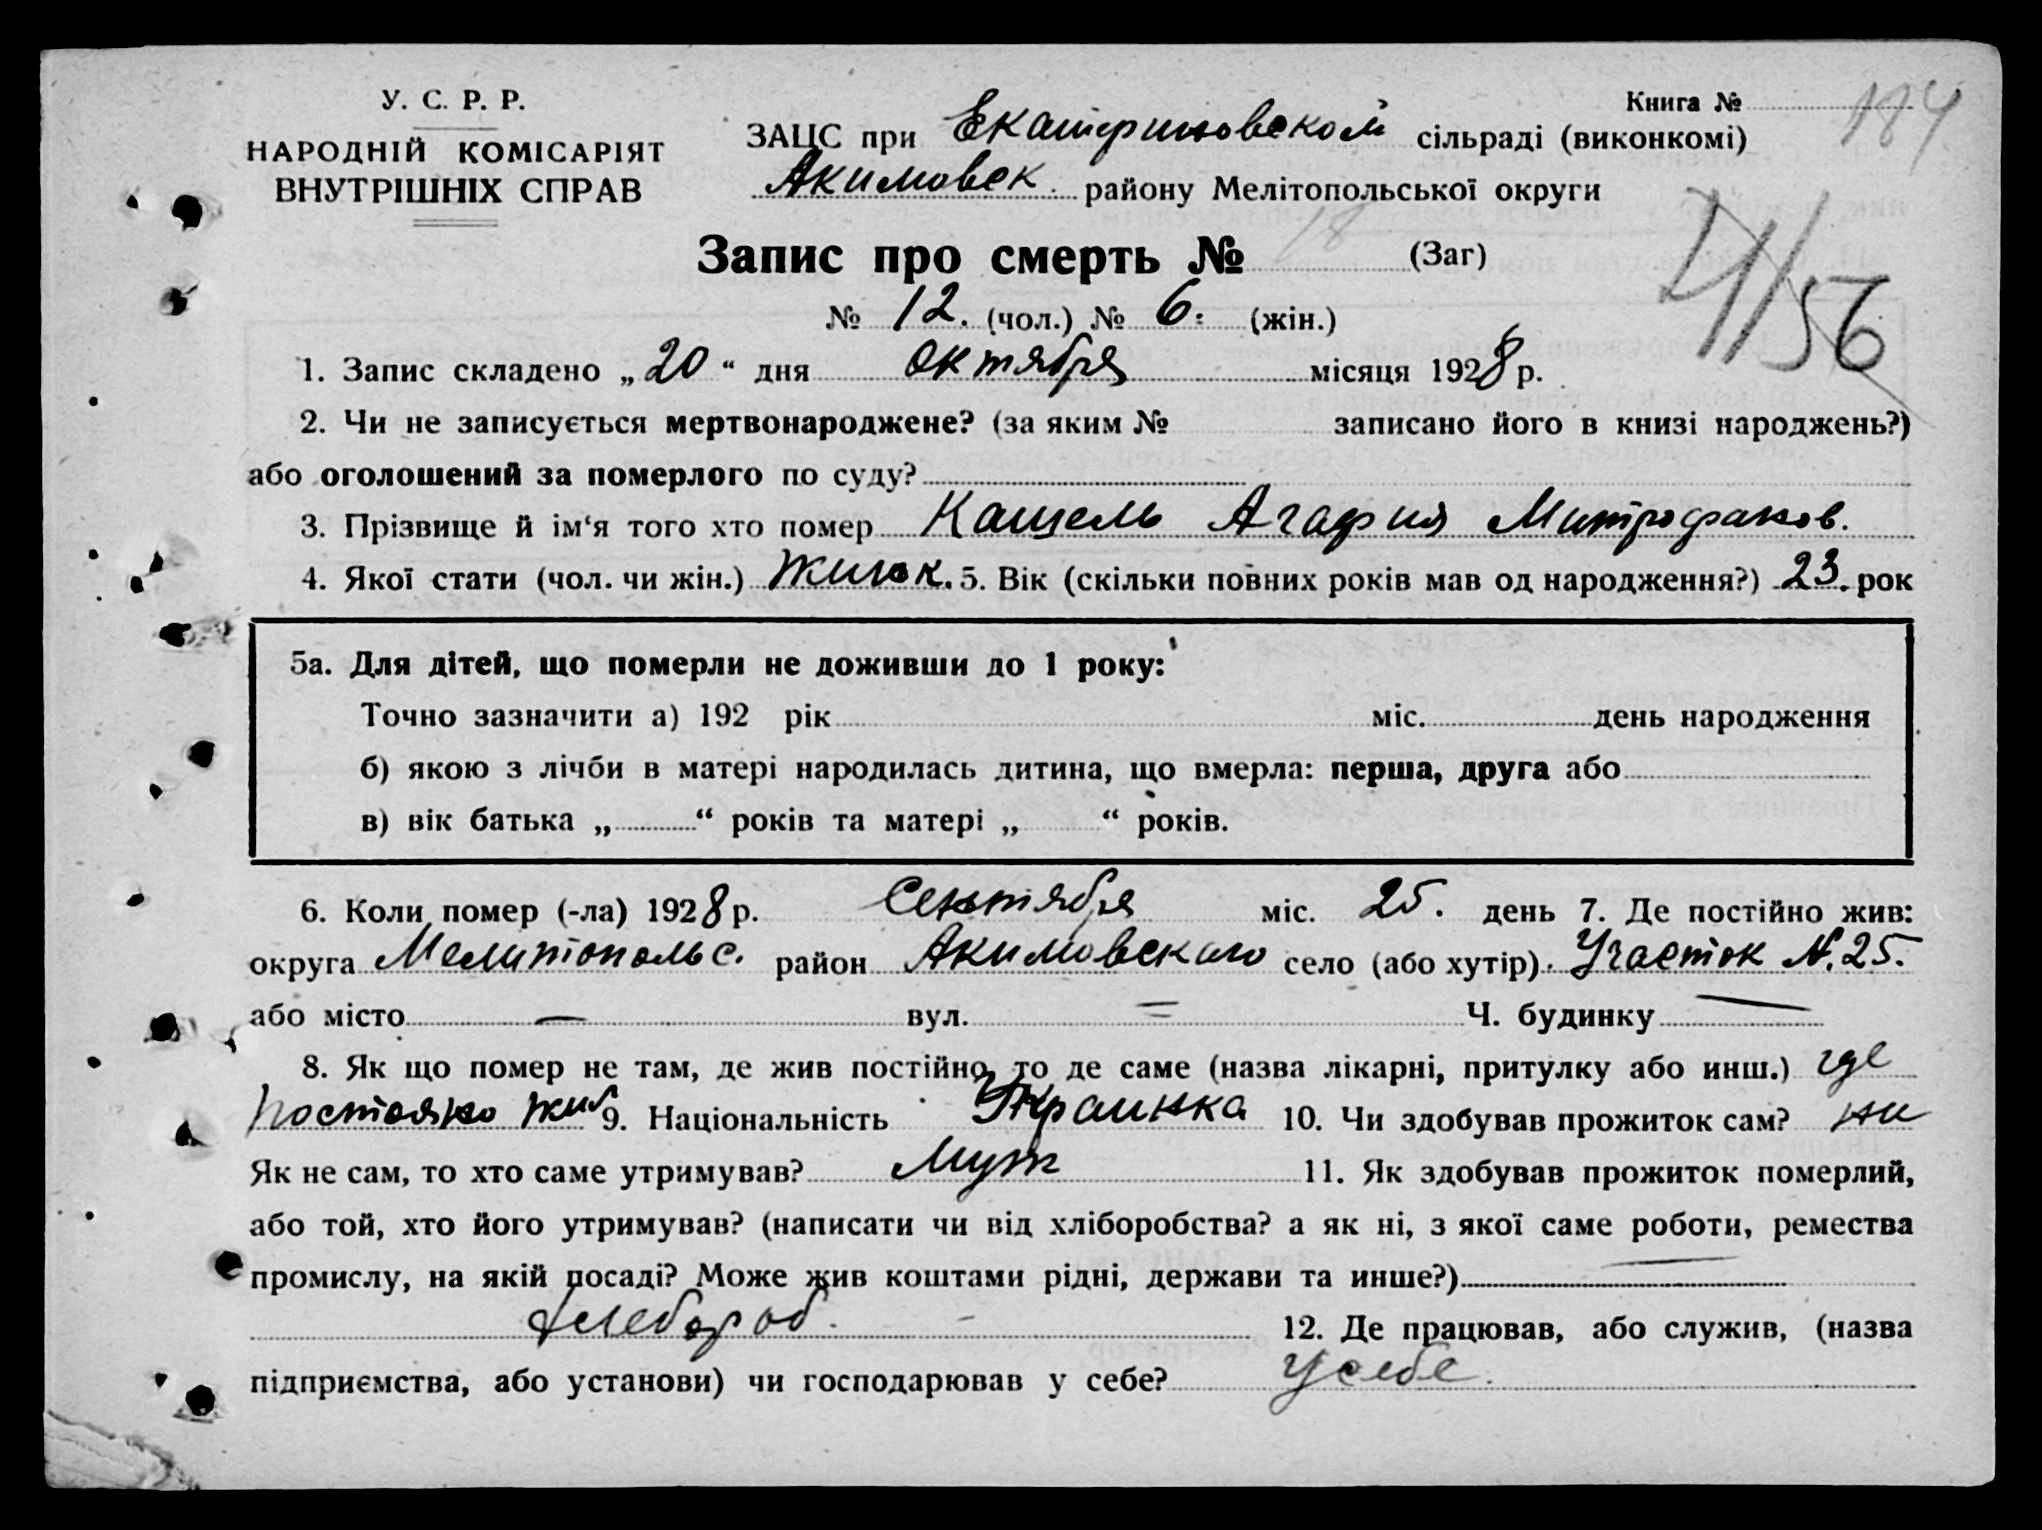 У. С. Р. Р.
НАРОДНІЙ КОМІСАРІЯТ
ВНУТРІШНІХ СПРАВ
Книга № 184
ЗАЦС при Екатериновском сільраді (виконкомі)
Акимовск. району Мелітопольської округи
Запис про смерть № 18 (Заг)
№ 12. (чол.) № 6. (жін.)
56
1. Запис складено „20“ дня октября місяця 1928 р.
2. Чи не записується мертвонароджене? (за яким № записано його в книзі народжень?)
або оголошений за померлого по суду?
3. Прізвище й ім‘я того хто помер Кащель Агафия Митрофанов.
4. Якої стати (чол. чи жін.) 5. Вік (скільки повних років мав од народження?) 23. рок
5а. Для дітей, що померли не доживши до 1 року:
Точно зазначити а) 192 рік міс. день народження
б) якою з лічби в матері народилась дитина, що вмерла: перша, друга або
в) вік батька „ “ років та матері „ “ років.
6. Коли помер (-ла) 1928 р. Сентября міс. 25. день 7. Де постійно жив:
округа Мелитопольс. район Акимовского село (або хутір) Участок №. 25.
або місто — вул. = Ч. будинку —
8. Як що помер не там, де жив постійно, то де саме (назва лікарні, притулку або инш.) где
постояно жил 9. Національність Украинка 10. Чи здобував прожиток сам? ни
Як не сам, то хто саме утримував? Муж 11. Як здобував прожиток померлий,
або той, хто його утримував? (написати чи від хліборобства? а як ні, з якої саме роботи, ремества
промислу, на якій посаді? Може жив коштами рідні, держави та инше?) —
хлебороб. - 12. Де працював, або служив, (назва
підприємства, або установи) чи господарював у себе? у себе.